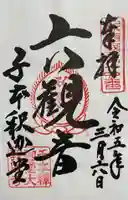 奉拝
令和五年
三月六日
六観音
千本釈迦堂